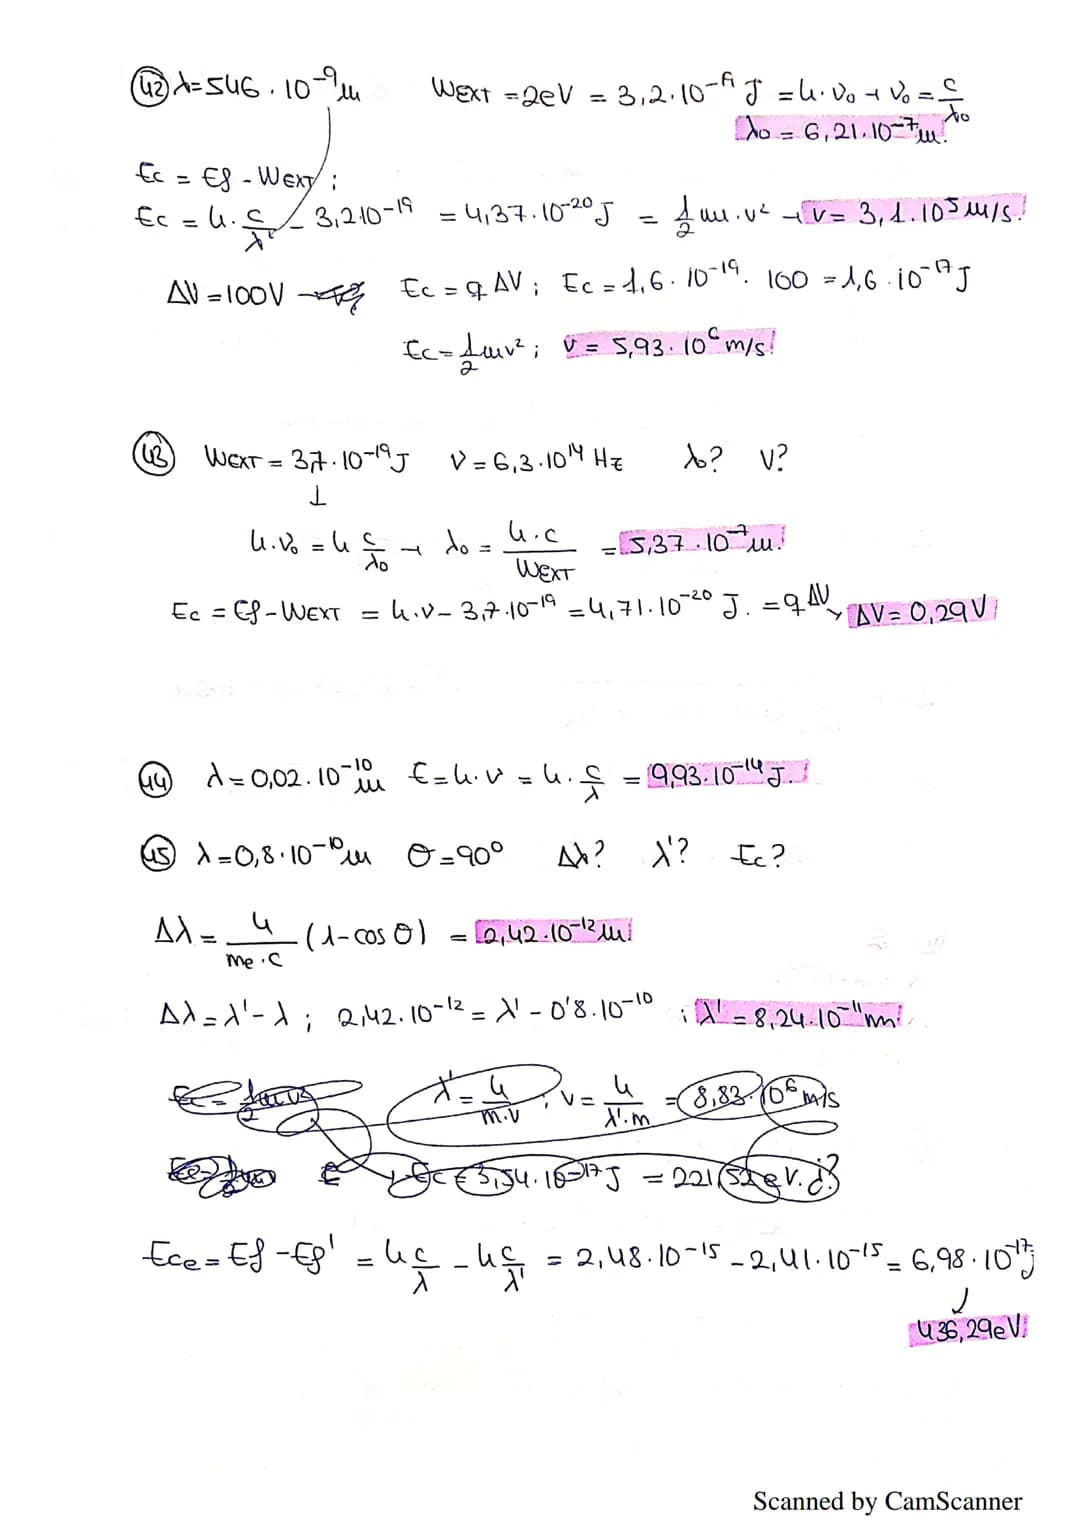 42 λ=546.10⁻⁹m WEXT = 2eV = 3,2.10⁻¹⁹ J = h.ν₀ → ν₀ = c/λ₀
λ₀ = 6,21.10⁻⁷m.
Ec = Ef - WEXT ;
Ec = h. c/λ - 3,2.10⁻¹⁹ = 4,37.10⁻²⁰ J = 1/2 m.v² → v = 3,1.10⁵ m/s.
ΔV = 100V → Ec = q ΔV ; Ec = 1,6.10⁻¹⁹. 100 = 1,6.10⁻¹⁷ J
Ec = 1/2 mv² ; v = 5,93.10⁶ m/s.
43 WEXT = 3,7.10⁻¹⁹ J ν = 6,3.10¹⁴ Hz λ₀? V?
↓
h.ν₀ = h c/λ₀ → λ₀ = h.c/WEXT = 5,37.10⁻⁷m.
Ec = Ef - WEXT = h.ν - 3,7.10⁻¹⁹ = 4,71.10⁻²⁰ J. = q ΔV → ΔV = 0,29V
44 λ = 0,02.10⁻¹⁰ m E = h.ν = h. c/λ = 9,93.10⁻¹⁴ J.
45 λ = 0,8.10⁻¹⁰ m θ = 90º Δλ? λ'? Ec?
Δλ = h/me.c (1 - cos θ) = 2,42.10⁻¹² m.
Δλ = λ' - λ ; 2,42.10⁻¹² = λ' - 0'8.10⁻¹⁰ ; λ' = 8,24.10⁻¹¹ m.
Ec = 1/2 mv² λ' = h/m.v ; v = h/λ'.m = 8,83.10⁶ m/s
Ec = 3,54.10⁻¹⁷ J = 221,52 eV. ¿?
Ece = Ef - Ef' = h c/λ - h c/λ' = 2,48.10⁻¹⁵ - 2,41.10⁻¹⁵ = 6,98.10⁻¹⁷ J
436,29eV.
Scanned by CamScanner